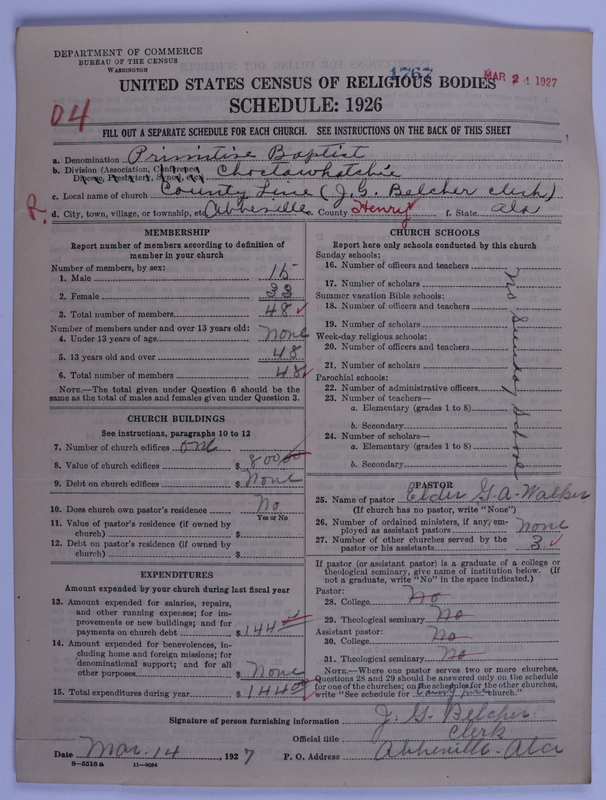 DEPARTMENT OF COMMERCE
BUREAU OF THE CENSUS
WASHINGTON
1767
MAR 21 1927
UNITED STATES CENSUS OF RELIGIOUS BODIES
SCHEDULE: 1926
04
FILL OUT A SEPARATE SCHEDULE FOR EACH CHURCH. SEE INSTRUCTIONS ON THE BACK OF THIS SHEET
a. Denomination Primitive Baptist
b. Division (Association, Conference, Diocese, Presbytery, Synod) Choctawhatchie
c. Local name of church County Line (J.G. Belcher clerk)
R.
d. City, town, village, or township, etc. Abbeville e. County Henry f. State Ala
MEMBERSHIP
Report number of members according to definition of member in your church
Number of members, by sex:
1. Male 15
2. Female 33
3. Total number of members 48
Number of members under and over 13 years old:
4. Under 13 years of age None
5. 13 years old and over 48
6. Total number of members 48
NOTE.—The total given under Question 6 should be the same as the total of males and females given under Question 3.
CHURCH BUILDINGS
See instructions, paragraphs 10 to 12
7. Number of church edifices one
8. Value of church edifices $ 800 00
9. Debt on church edifices $ None
10. Does church own pastor's residence No
Yes or No
11. Value of pastor's residence (if owned by church) $
12. Debt on pastor's residence (if owned by church) $
EXPENDITURES
Amount expended by your church during last fiscal year
13. Amount expended for salaries, repairs, and other running expenses; for improvements or new buildings; and for payments on church debt $ 144
14. Amount expended for benevolences, including home and foreign missions; for denominational support; and for all other purposes $ None
15. Total expenditures during year $ 144 00
CHURCH SCHOOLS
Report here only schools conducted by this church
Sunday schools:
16. Number of officers and teachers
17. Number of scholars
Summer vacation Bible schools:
18. Number of officers and teachers
19. Number of scholars
Week-day religious schools:
20. Number of officers and teachers
21. Number of scholars
Parochial schools:
22. Number of administrative officers
23. Number of teachers—
a. Elementary (grades 1 to 8)
b. Secondary
24. Number of scholars—
a. Elementary (grades 1 to 8)
b. Secondary
Sunday School
PASTOR
25. Name of pastor Elder G.A. Walker
(If church has no pastor, write "None")
26. Number of ordained ministers, if any, employed as assistant pastors None
27. Number of other churches served by the pastor or his assistants 3
If pastor (or assistant pastor) is a graduate of a college or theological seminary, give name of institution below. (If not a graduate, write "No" in the space indicated.)
Pastor:
28. College No
29. Theological seminary No
Assistant pastor:
30. College No
31. Theological seminary No
NOTE.—Where one pastor serves two or more churches, Questions 28 and 29 should be answered only on the schedule for one of the churches; on the schedules for the other churches, write "See schedule for church."
Signature of person furnishing information J. G. Belcher
Official title Clerk
Date Mar. 14, 1927 P. O. Address Abbeville. Ala
8—5518 a 11—9054